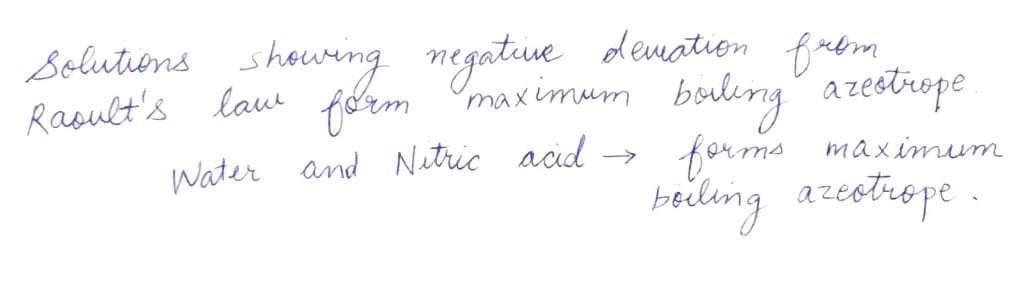 Solutions showing negative deviation from
Raoult's law form maximum boiling azeotrope.
Water and Nitric acid → forms maximum
boiling azeotrope.